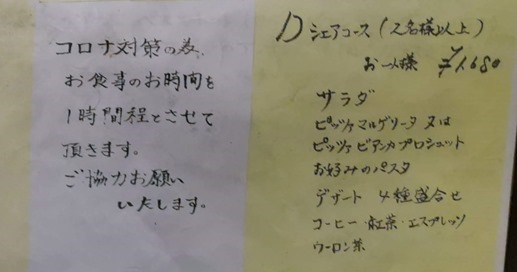 コロナ対策の為、
お食事のお時間を
1時間程とさせて
頂きます。
ご協力お願い
いたします。
D シェアコース（2名様以上）
お一人様 ¥1,680
サラダ
ピッツァマルゲリータ 又は
ピッツァ ビアンカプロシュット
お好みのパスタ
デザート 4種盛合せ
コーヒー・紅茶・エスプレッソ
ウーロン茶